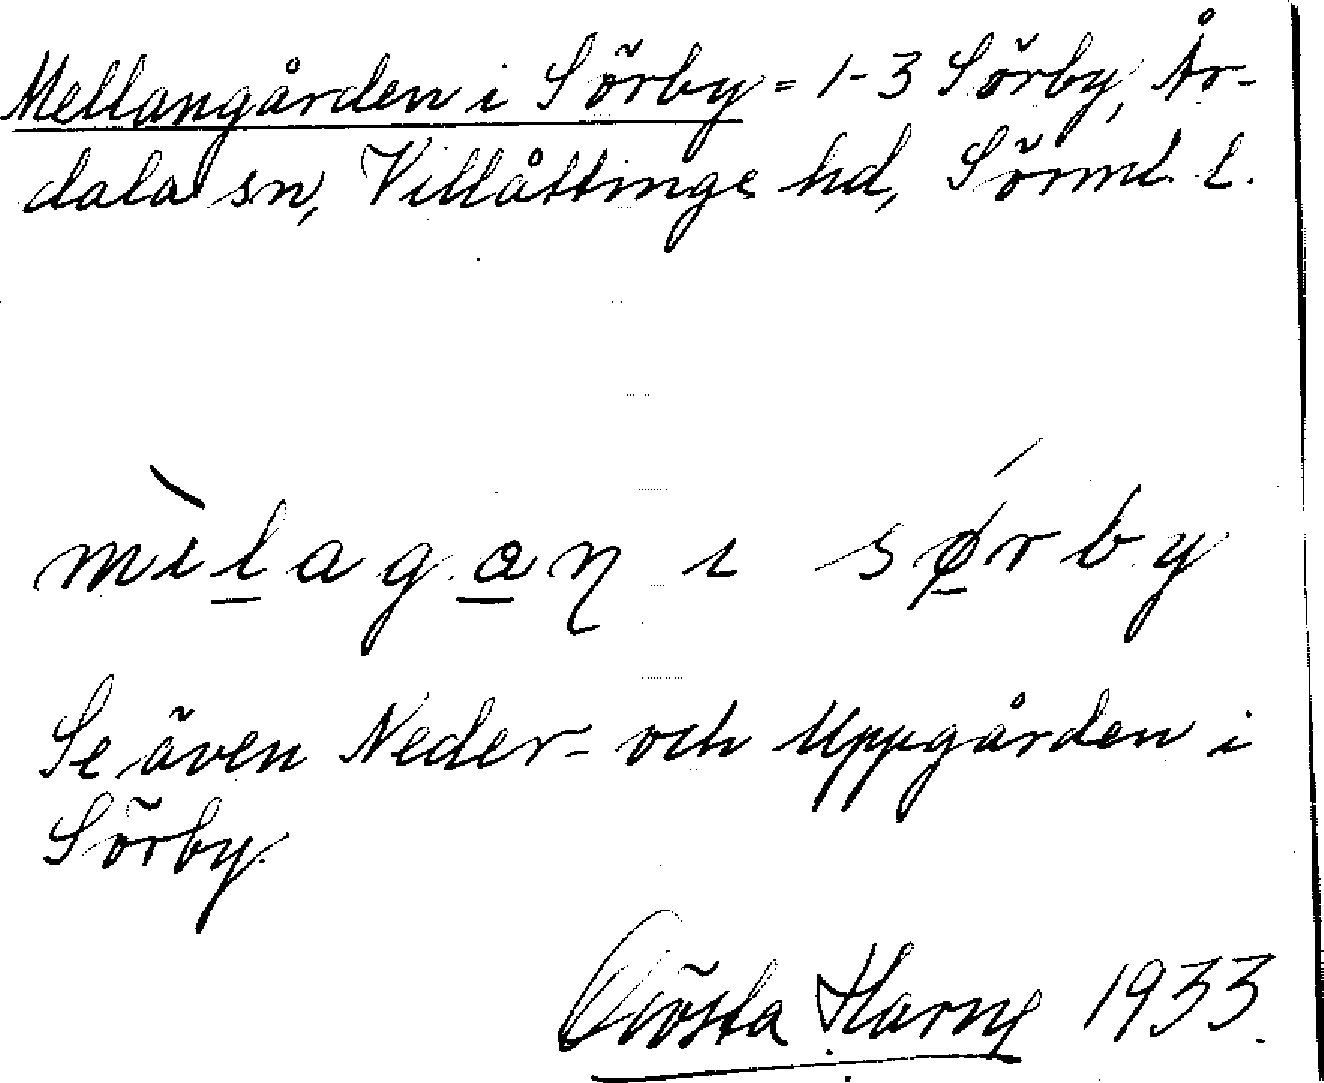 Mellangården i Sörby = 1-3 Sörby, År-
dala sn, Villåttinge hd, Sörml. l.
mìlagaŋ i sǿrby
Se även Neder- och Uppgården i
Sörby.
Gösta 1933.